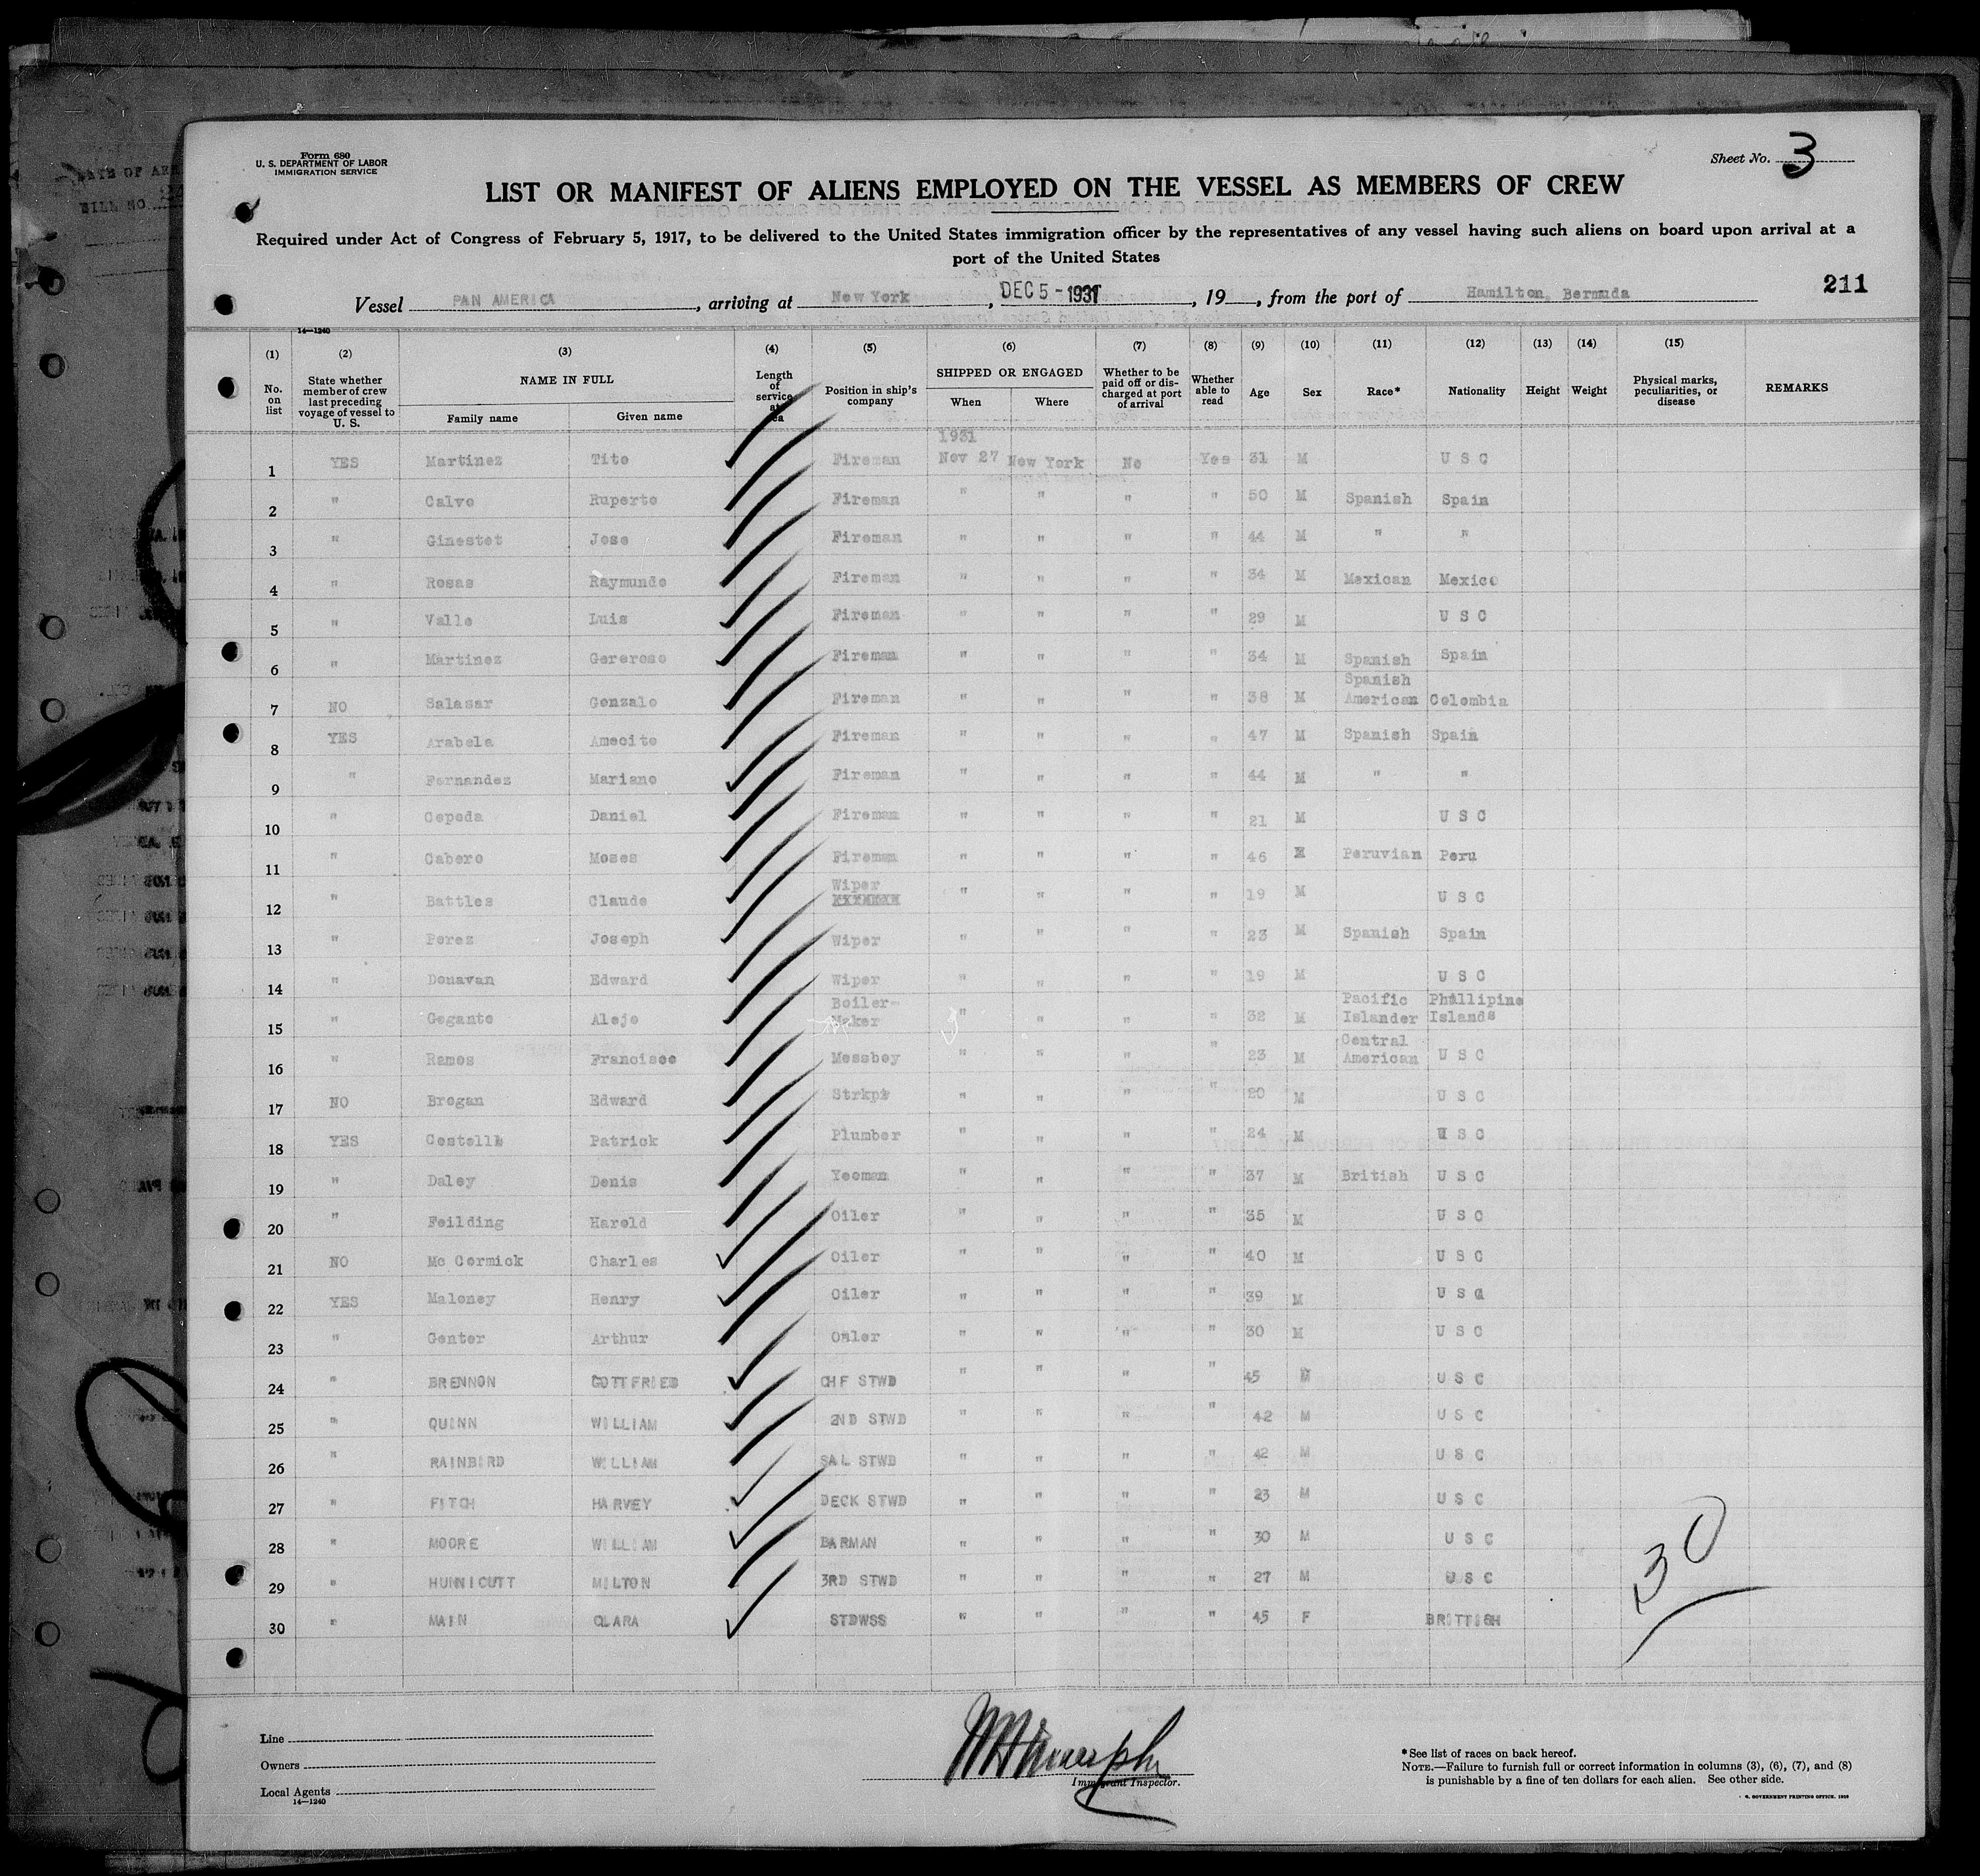 Form 680
U. S. DEPARTMENT OF LABOR
IMMIGRATION SERVICE
Sheet No. 3
LIST OR MANIFEST OF ALIENS EMPLOYED ON THE VESSEL AS MEMBERS OF CREW
Required under Act of Congress of February 5, 1917, to be delivered to the United States immigration officer by the representatives of any vessel having such aliens on board upon arrival at a
port of the United States
211
Vessel PAN AMERICA, arriving at New York, DEC 5 - 1931, 19 , from the port of Hamilton, Bermuda
14—1240
(1) (2) (3) (4) (5) (6) (7) (8) (9) (10) (11) (12) (13) (14) (15)
No. on list State whether member of crew last preceding voyage of vessel to U. S. NAME IN FULL Family name Given name Length of service at sea Position in ship's company SHIPPED OR ENGAGED When Where Whether to be paid off or discharged at port of arrival Whether able to read Age Sex Race* Nationality Height Weight Physical marks, peculiarities, or disease REMARKS
1931
1 YES Martinez Tito Fireman Nov 27 New York No Yes 31 M U S C
2 " Calvo Ruperto Fireman " " " " 50 M Spanish Spain
3 " Ginestet Jose Fireman " " " " 44 M " "
4 " Rosas Raymundo Fireman " " " " 34 M Mexican Mexico
5 " Valle Luis Fireman " " " " 29 M U S C
6 " Martinez Gereroso Fireman " " " " 34 M Spanish Spain
7 NO Salasar Gonzalo Fireman " " " " 38 M Spanish American Colombia
8 YES Arabela Amecito Fireman " " " " 47 M Spanish Spain
9 " Fernandez Mariano Fireman " " " " 44 M " "
10 " Cepeda Daniel Fireman " " " " 21 M U S C
11 " Cabero Moses Fireman " " " " 46 M Peruvian Peru
12 " Battles Claude Wiper " " " " 19 M U S C
13 " Perez Joseph Wiper " " " " 23 M Spanish Spain
14 " Donavan Edward Wiper " " " " 19 M U S C
15 " Gegante Alejo Boiler-Maker " " " " 32 M Pacific Islander Phillipine Islands
16 " Ramos Francisco Messboy " " " " 23 M Central American U S C
17 NO Brogan Edward Strkpr " " " " 20 M U S C
18 YES Costello Patrick Plumber " " " " 24 M U S C
19 " Daley Denis Yeoman " " " " 37 M British U S C
20 " Feilding Harold Oiler " " " " 35 M U S C
21 NO Mc Cormick Charles Oiler " " " " 40 M U S C
22 YES Maloney Henry Oiler " " " " 39 M U S C
23 " Genter Arthur Oiler " " " " 30 M U S C
24 " BRENNON GOTTFRIED CHF STWD " " " " 45 M U S C
25 " QUINN WILLIAM 2ND STWD " " " " 42 M U S C
26 " RAINBIRD WILLIAM SAL STWD " " " " 42 M U S C
27 " FITCH HARVEY DECK STWD " " " " 23 M U S C
28 " MOORE WILLIAM BARMAN " " " " 30 M U S C
29 " HUNNICUTT MILTON 3RD STWD " " " " 27 M U S C
30 " MAIN CLARA STDWSS " " " " 45 F BRITTISH
30
Line
Owners
Local Agents
14—1240
Immigrant Inspector.
*See list of races on back hereof.
NOTE.—Failure to furnish full or correct information in columns (3), (6), (7), and (8)
is punishable by a fine of ten dollars for each alien. See other side.